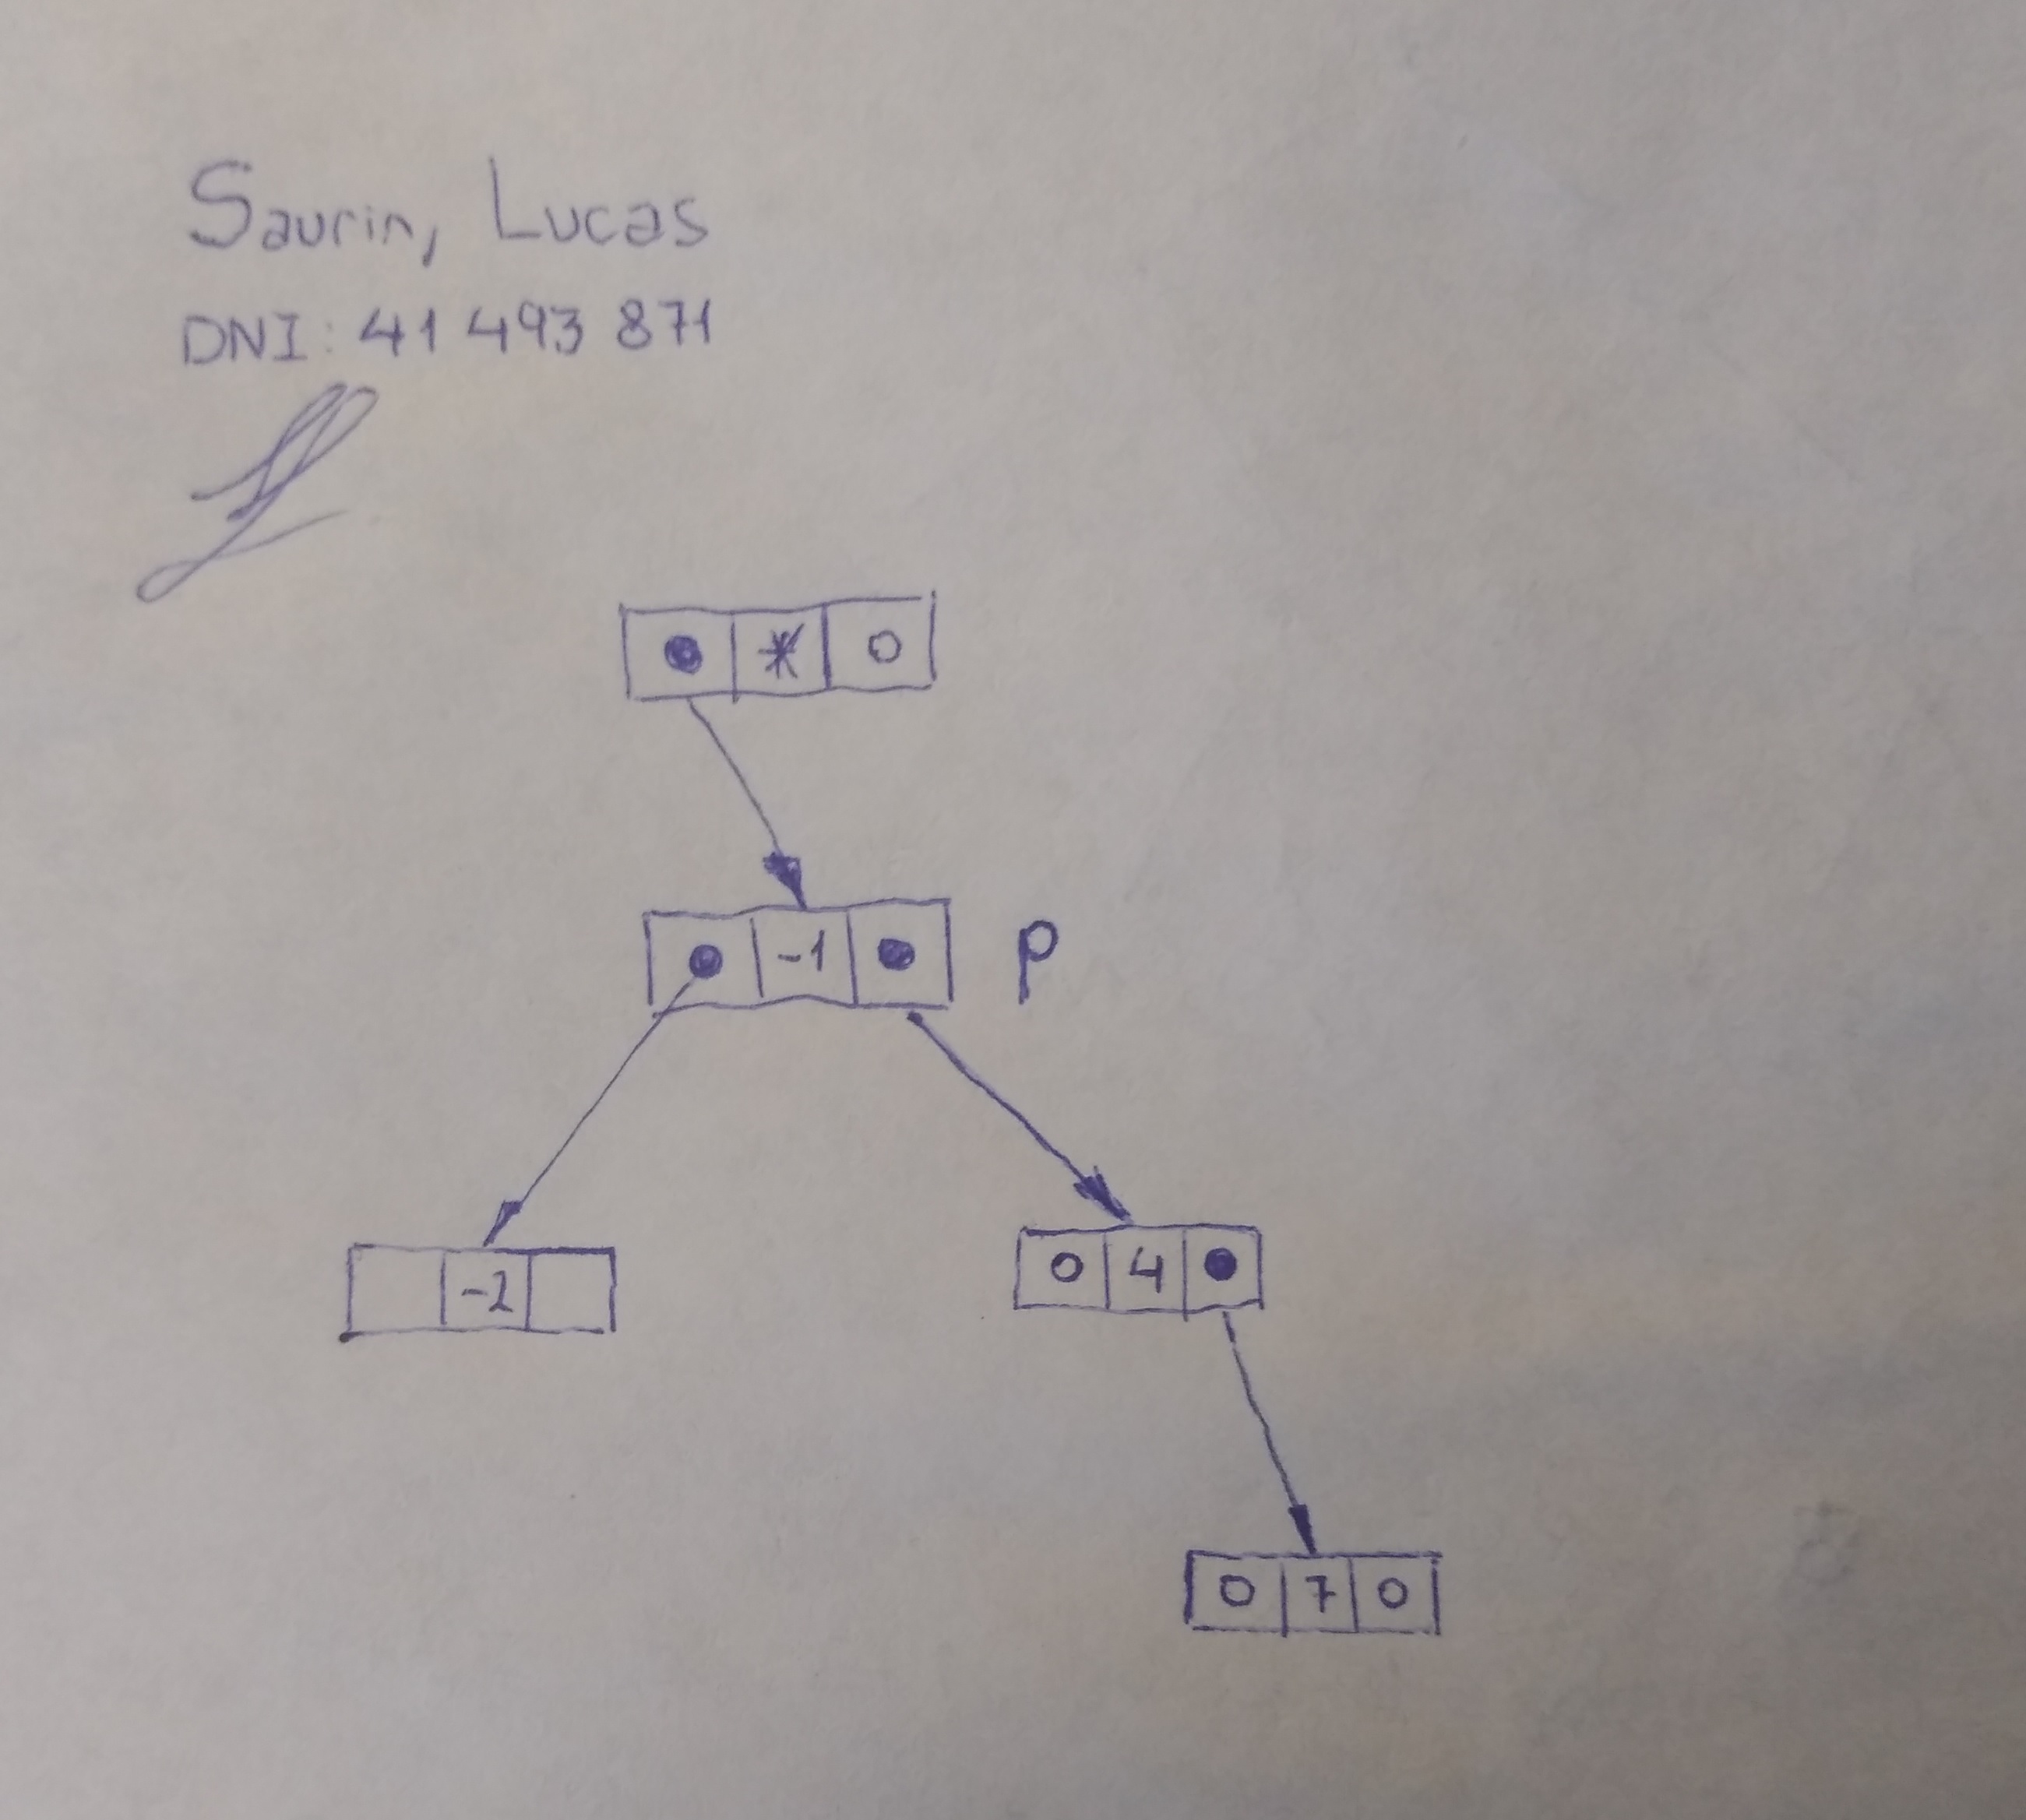 Saurin, Lucas
DNI: 41 493 871
*
-1 P
-2
0 4
0 7 0